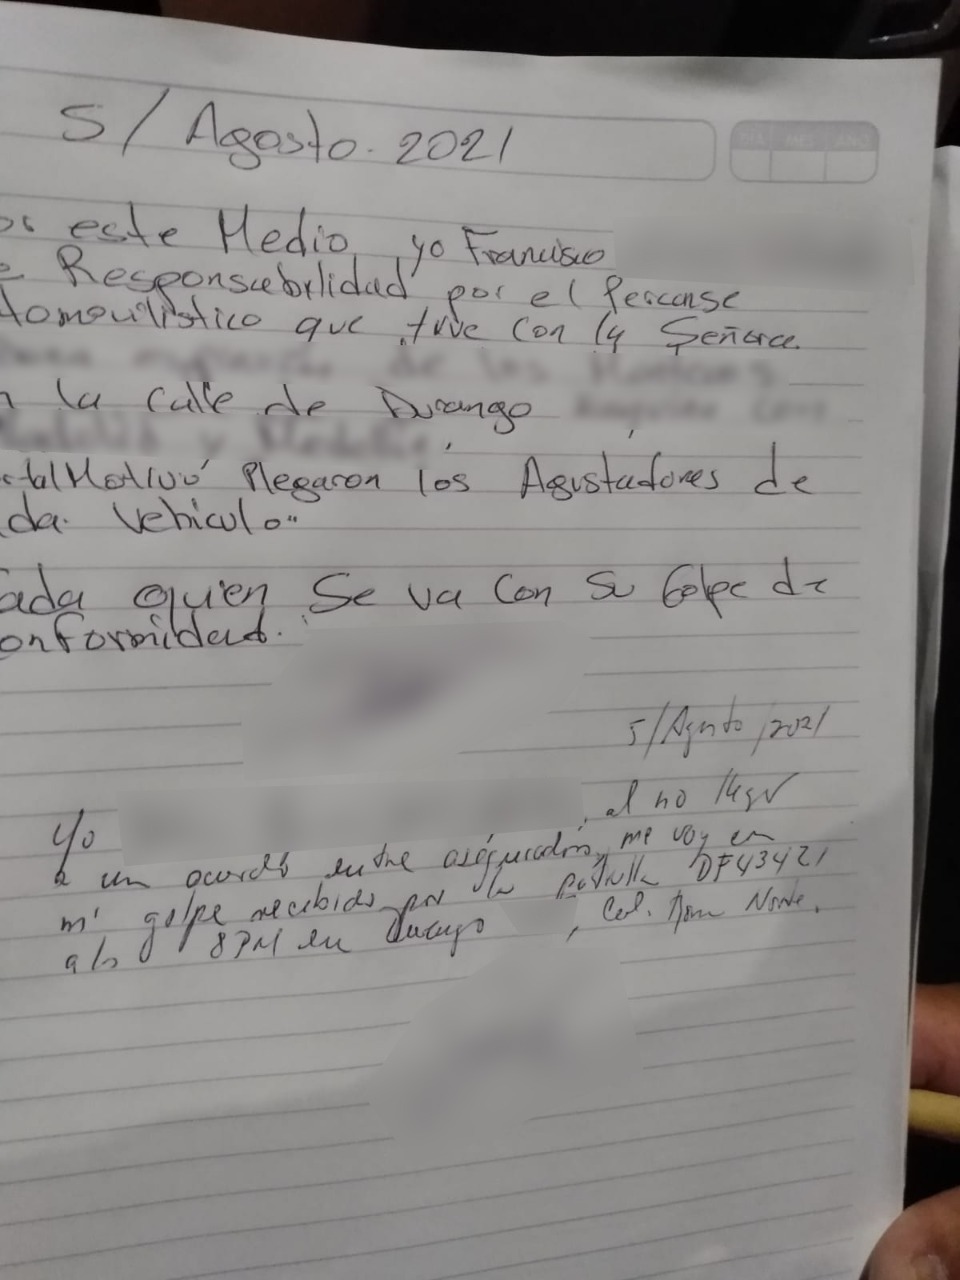 5/ Agosto. 2021
DIA MES AÑO
este Medio, yo Francisco
Responsabilidad por el Percanse
tomovilistico que tuve con la Señora
la calle de Durango
llegaron los Agustadores de
da. Vehiculo..
ada quien Se va con su Golpe de
onformidad.
5/Agosto/2021
Yo , al no llegar
a un acuerdo entre aseguradoras, me voy en
mi golpe recibido por la patrulla DF43421
a ls 8 PM en Durango , Col. Roma Norte.